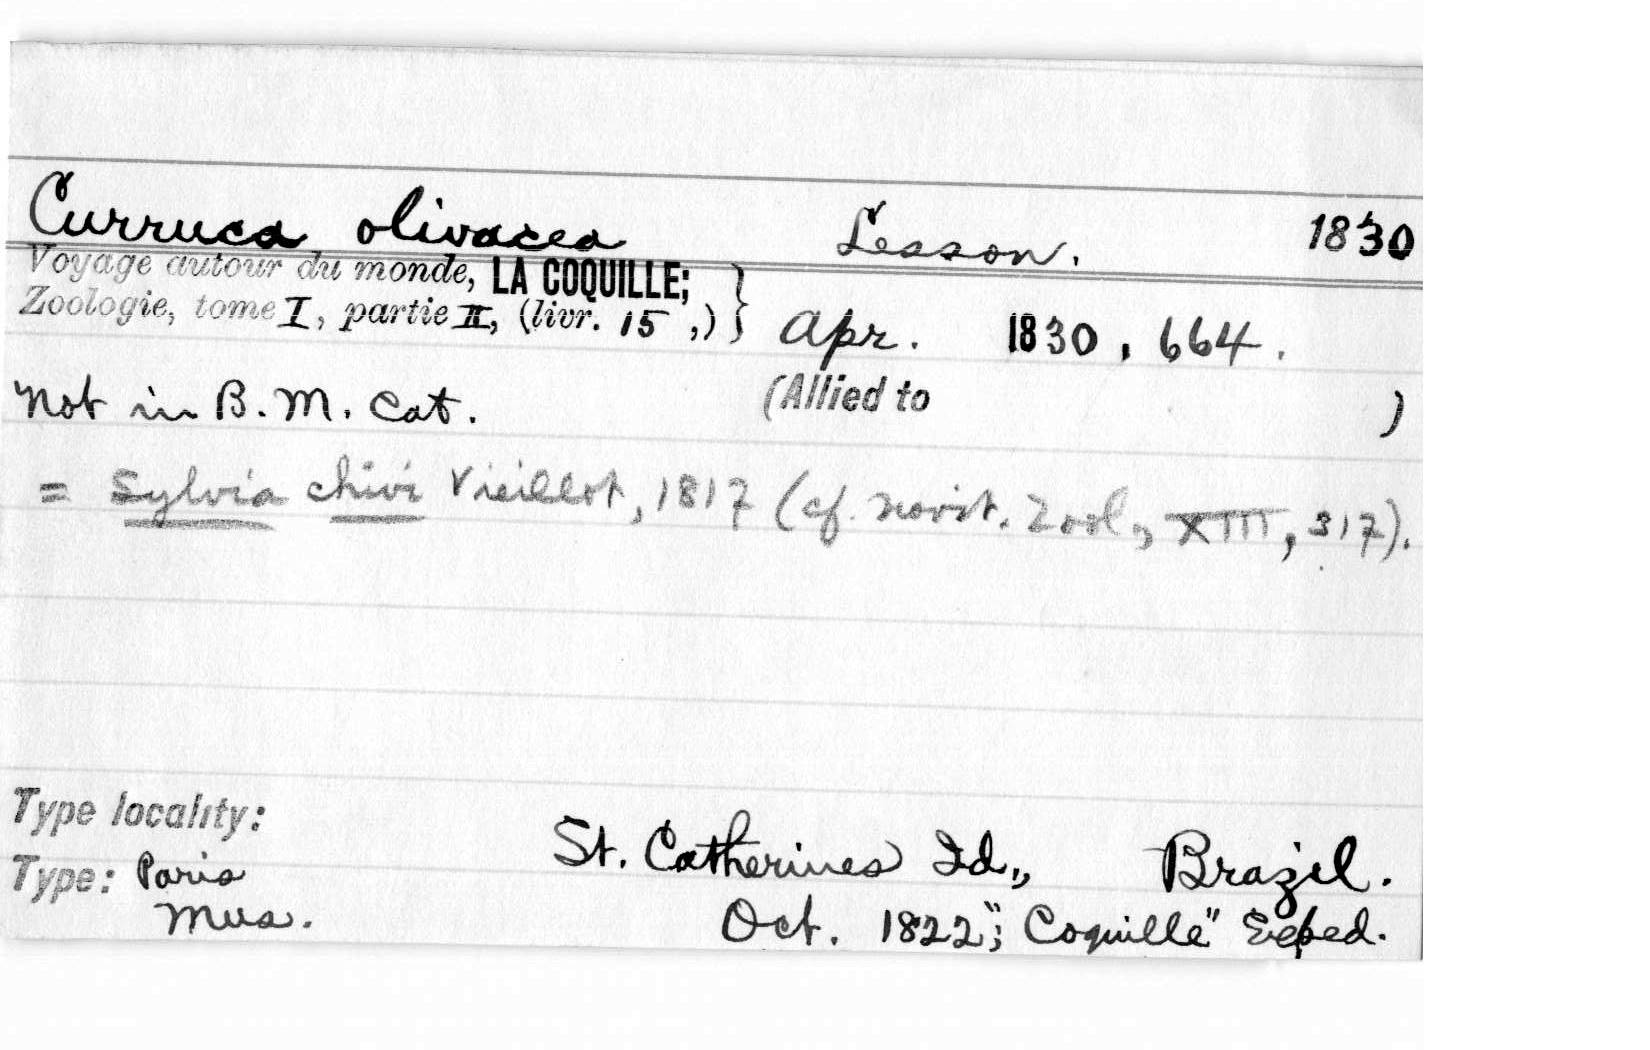 Curruca olivacea Lesson. 1830
Voyage autour du monde, LA COQUILLE;
Zoologie, tome I, partie II, (livr. 15,) } Apr. 1830, 664.
Not in B. M. Cat. (Allied to )
= Sylvia chivi Vieillot, 1817 (cf. Novit. Zool., XIII, 317).
Type locality:
St. Catherines Id., Brazil.
Type: Paris
Mus. Oct. 1822; "Coquille" Exped.